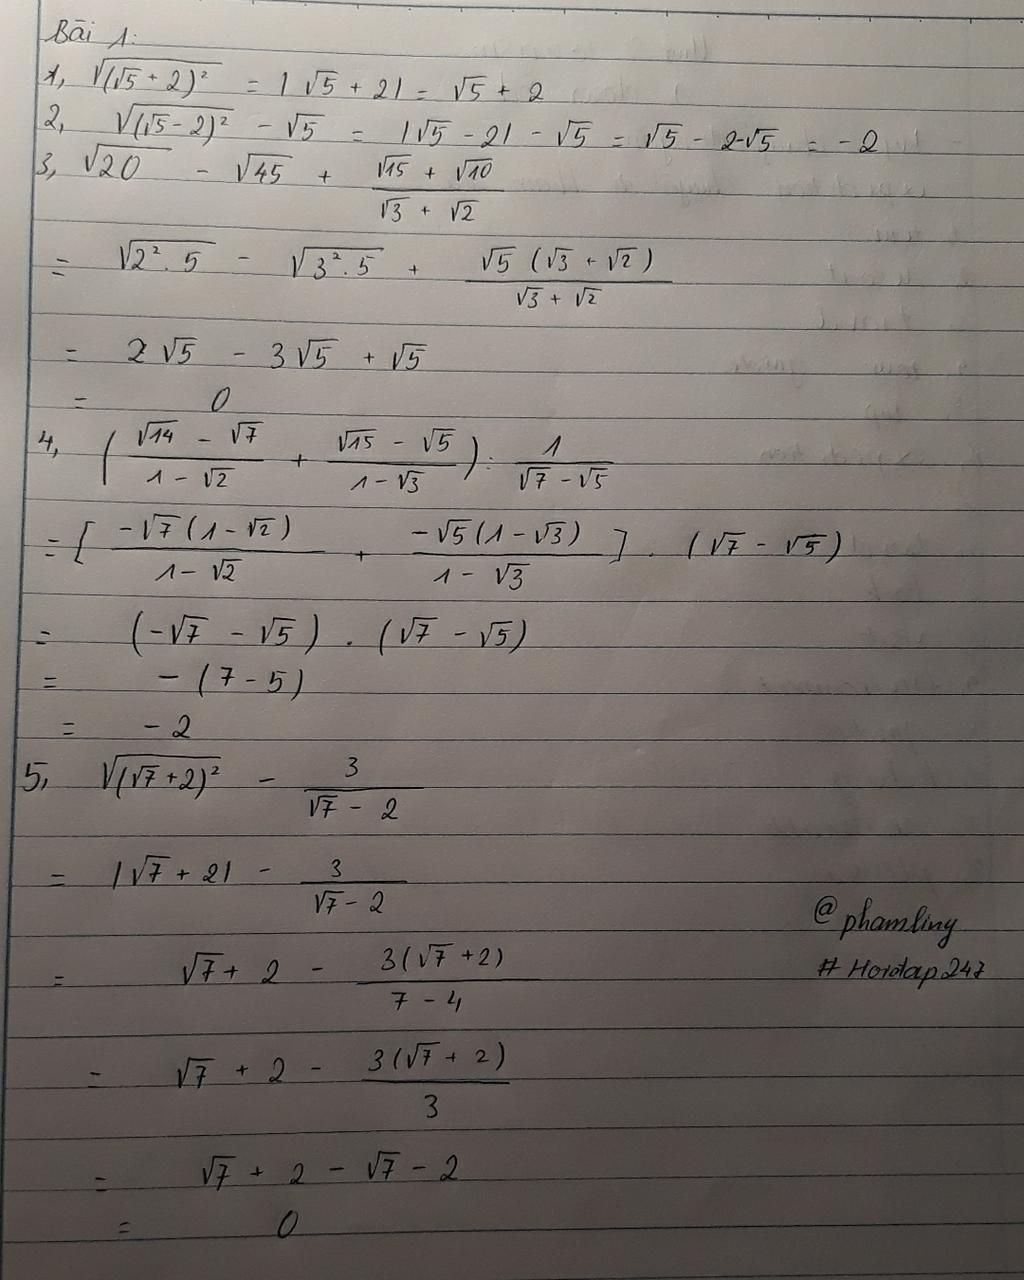 Bài 1:
1, √(√5 + 2)² = |√5 + 2| = √5 + 2
2, √(√5 - 2)² - √5 = |√5 - 2| - √5 = √5 - 2-√5 = -2
3, √20 - √45 + (√15 + √10)/(√3 + √2)
= √2².5 - √3².5 + √5(√3 + √2)/(√3 + √2)
= 2√5 - 3√5 + √5
= 0
4, ((√14 - √7)/(1 - √2) + (√15 - √5)/(1 - √3)) : 1/(√7 - √5)
= [-√7(1 - √2)/(1 - √2) + -√5(1 - √3)/(1 - √3)] . (√7 - √5)
= (-√7 - √5) . (√7 - √5)
= - (7 - 5)
= - 2
5, √(√7 + 2)² - 3/(√7 - 2)
= |√7 + 2| - 3/(√7 - 2)
= √7 + 2 - 3(√7 + 2)/(7 - 4)
= √7 + 2 - 3(√7 + 2)/3
= √7 + 2 - √7 - 2
= 0
@phamling
# Hoidap247